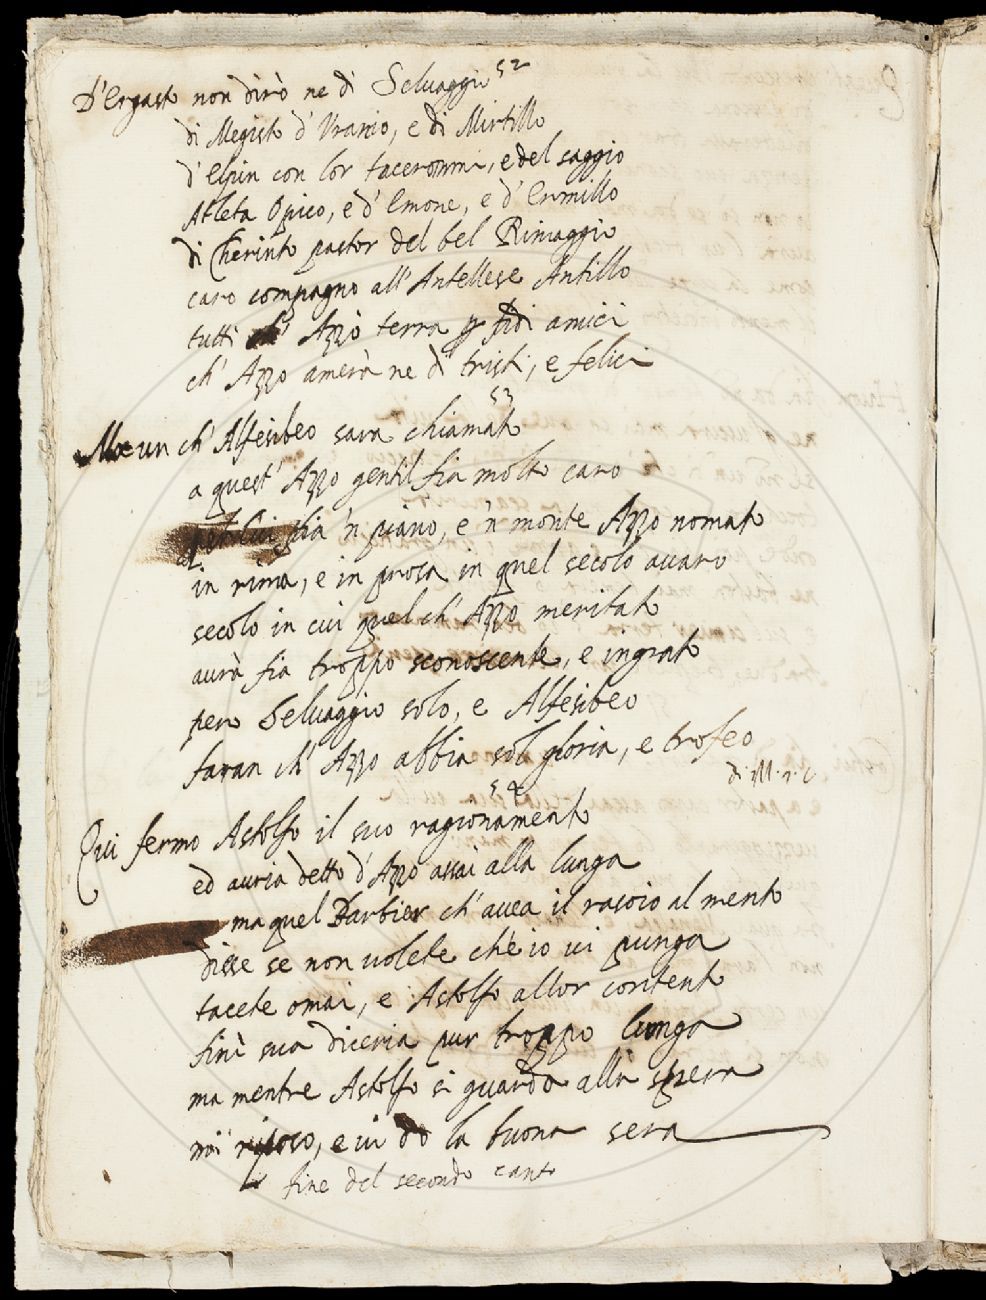 52
D'Ergasto non dirò ne di Selvaggio
di Megisto d'Uranio, e di Mirtillo
d'Elpin con lor tacerommi, e del saggio
Atleta Opico, e d'Emone, e d'Ermillo
di Cherinto pastor del bel Rimaggio
caro compagno all'Antellese Antillo
tutti Azzo terrà p fidi amici
ch'Azzo amerà ne dì tristi, e felici
53
Ma un ch'Alfesibeo sara chiamato
a quest'Azzo gentil fia molto caro
fia 'n piano, e 'n monte Azzo nomato
in rima, e in prosa in quel secolo avaro
secolo in cui quel ch'Azzo meritato
aurà fia troppo sconoscente, e ingrato
pero Selvaggio solo, e Alfesibeo
faran ch'Azzo abbia sol gloria, e trofeo
54
Qui fermo Astolfo il suo ragionamento
ed auria detto d'Azzo assai alla lunga
ma quel Barbier ch'auea il rasoio al mento
disse se non uolete ch'è io ui punga
tacete omai, e Astolfo allor contento
finì sua diceria pur troppo lunga
ma mentre Astolfo si guarda alla spera
mi riposo, e ui do la buona sera
fine del secondo canto